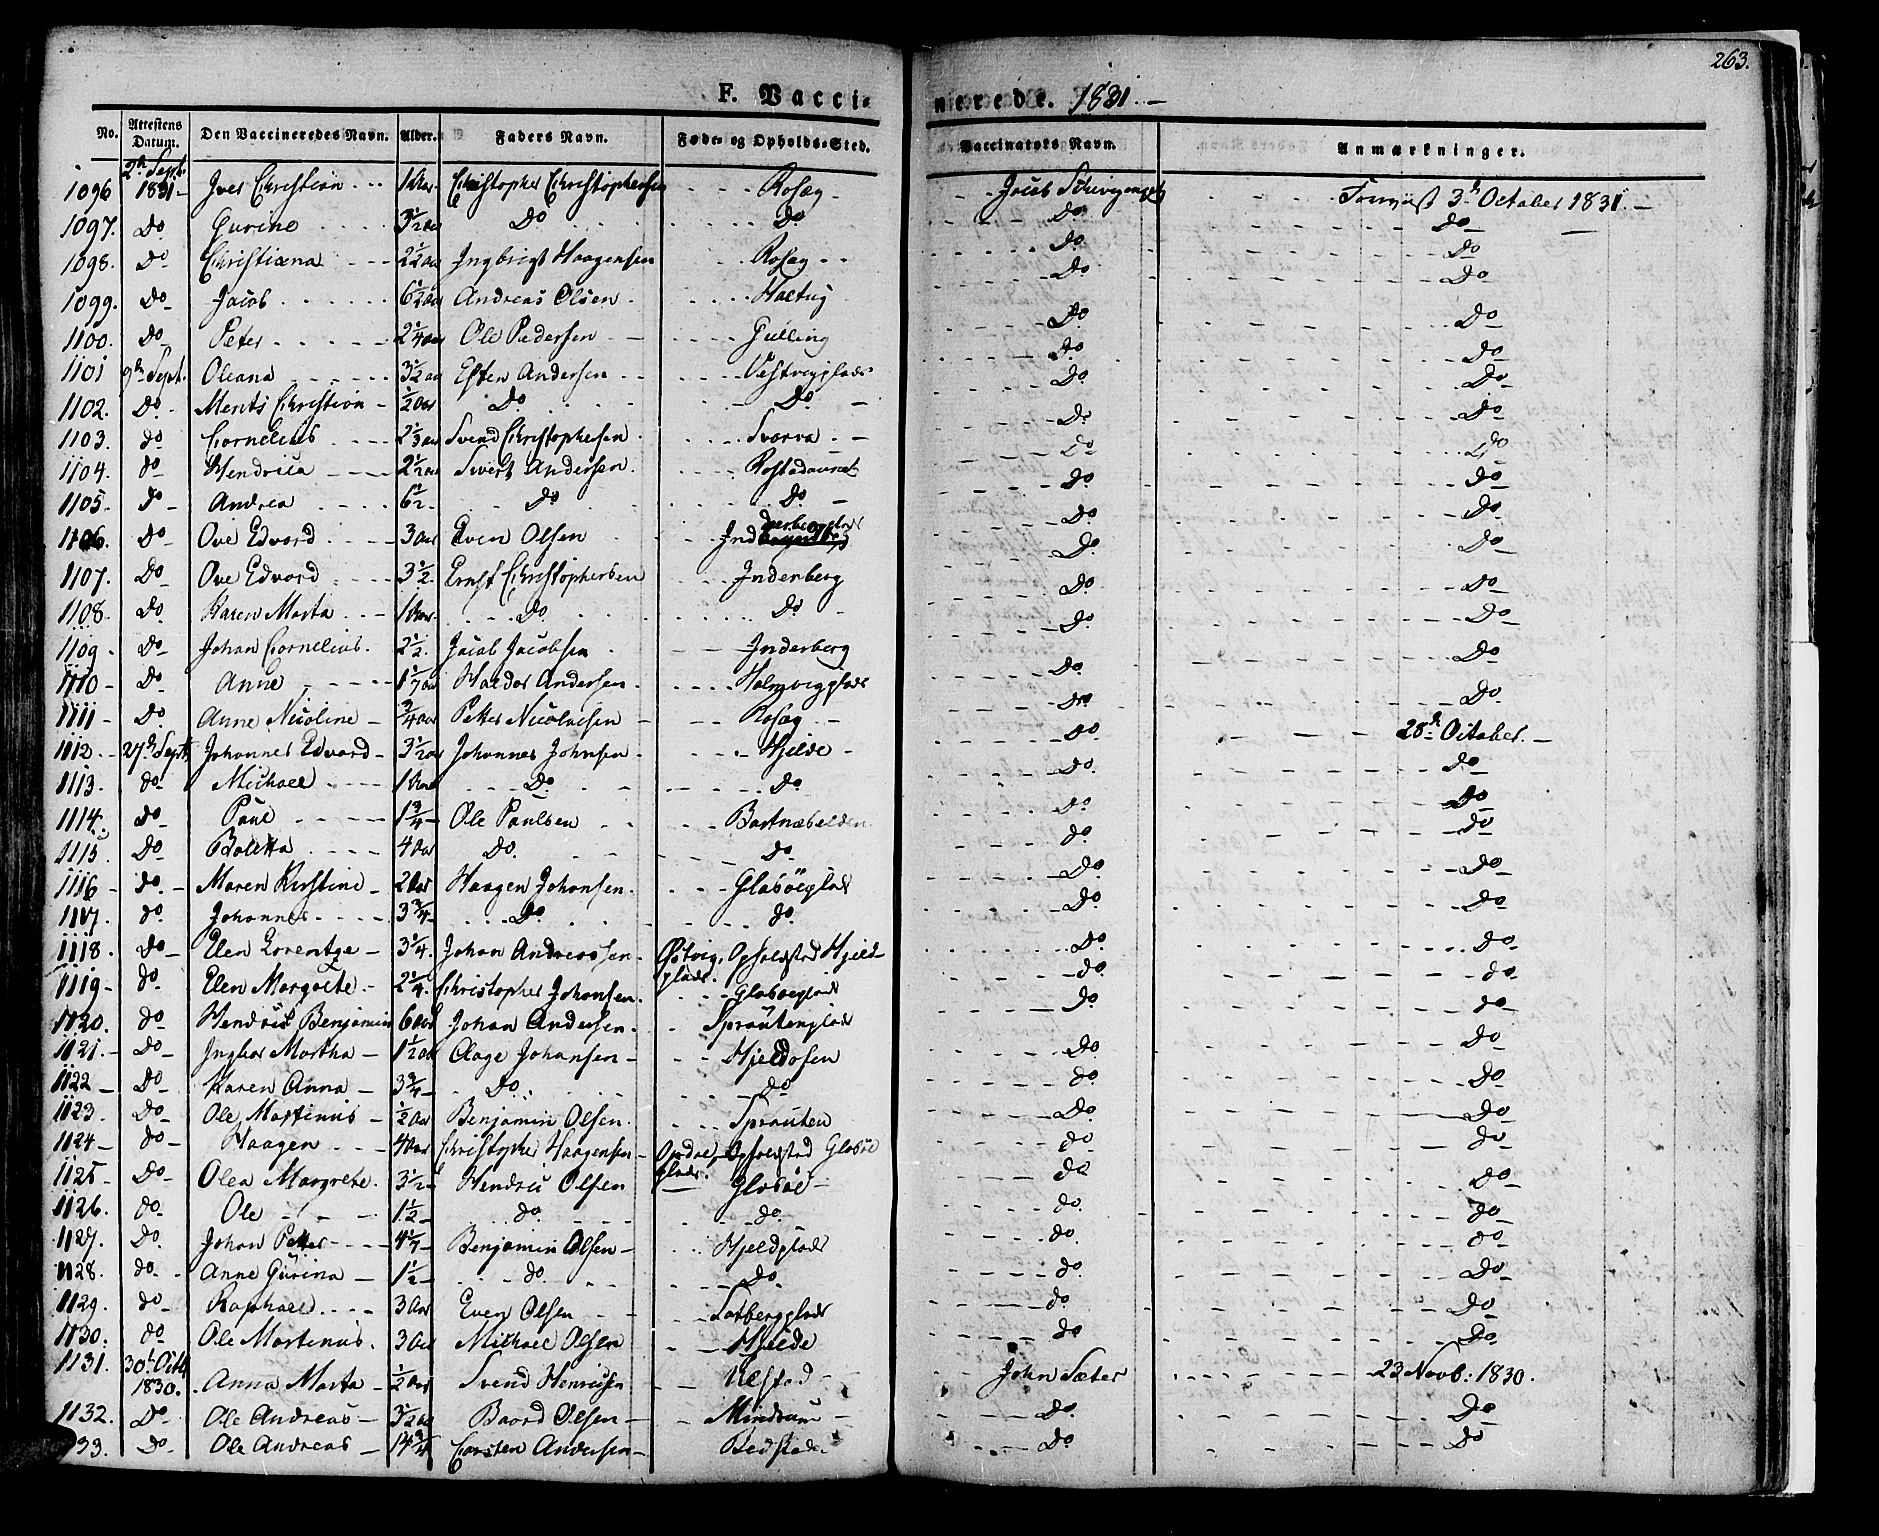 263.
F. Vaccinerede. 1831. –
No. Attestens Datum. Den Vaccineredes Navn. Alder. Faders Navn. Føde- og Opholds-Sted. Vaccinators Navn. Anmærkninger.
1096 2den Sept. 1831 – Iver Christian 1 Aar. Christopher Christophersen Rosæg Jacob 3die October 1831. –
1097. Do Gurine 3 1/2 Aar Do Do. Do Do
1098. Do Christiana 2 1/2 Aar Ingbrigt Haagensen Rosæg Do Do
1099. Do Jacob 6 1/2 Aar Andreas Olsen Haltug Do Do
1100. Do Peter 2 1/4 Aar Ole Pedersen Gulling Do Do
1101 9de Sept. Oleana 3 1/2 Aar Esten Andersen Vestvigplads Do Do
1102. Do Ments Christian 1/2 Aar Do Do Do Do
1103. do Cornelius 2 1/3 Aar Svend Christophersen Svarva Do Do
1104. do Hendrica 2 1/2 Aar Sivert Andersen Rostadaunet Do Do
1105. Do Andrea 6 1/2 Do Do Do Do
1106. Do Ove Edvard 3 Aar Even Olsen Inderbergplads Do Do
1107. Do Ove Edvard 3 1/2 Ernst Christophersen Inderberg Do Do
1108. Do Karen Marta 1 Aar. Do Do Do Do
1109 Do Johan Cornelius 2 1/2 Jacob Jacobsen Inderberg Do Do
1110 Do Anne 1 1/7 Aar Haldor Andersen Holmvigplads Do Do
1111 Do Anne Nicoline 3/4 Aar Petter Nicolaisen Rosæg Do Do
1112. 27de Sept. Johannes Edvard 3 1/2 Aar Johannes Johnsen Hjelde Do 28de October. –
1113. do Michael 1 Aar Do Do Do Do
1114. Do Paul 1 3/4 Ole Paulsen Do Do
1115 Do Boletta 4 Aar Do. Do do Do
1116 do. Maren Kirstine 2 Aar Haagen Johansen. Glasöeplads Do Do
1117. do Johannes 3 3/4 Do. do. Do Do
1118. Do Elen Lorentze 3 1/4. Johan Andreassen Østvig, Opholdsted Hjeldplads. Do Do
1119 do. Elen Margrete 2 1/4. Christopher Johansen Glasöeplads do. do
1120. do Hendrick Benjamin 6 Aar Johan Andersen Sprautenplads do do
1121. Do Ingbor Martha 1 1/2 Aar Aage Johansen Hjeldosen Do Do
1122 Do Karen Anna 3 3/4 Do. do do. Do
1123. Do Ole Martinus 1/2 Aar Benjamin Olsen. Sprauten Do Do
1124 do Haagen 4 Aar Christopher Haagensen Opdal, Opholdsted Glasöeplads. do do
1125 Do Olea Margrete. 3 1/2 Hendric Olsen Glasöe do Do
1126. do Ole 1 1/2 do. do. do. do
1127. Do. Johan Petter 4 1/7 Benjamin Olsen Hjeldplads do. do
1128. do Anne Gurina 1 1/2 do. Do. do Do
1129. do Raphael 3 Aar Even Olsen do. Do
1130. do Ole Martinus. 3 Aar Michael Olsen Hjelde do Do
1131. 30te Octb. 1830. Anna Marta 1/2 Aar Svend Henricsen Ulstad John Sæter 23 Novb: 1830.
1132. Do Ole Andreas 3 1/2 Aar Baard Olsen Mindrum Do. Do
33. Do Ole Andreas 14 3/4 Carsten Andersen Do. Do